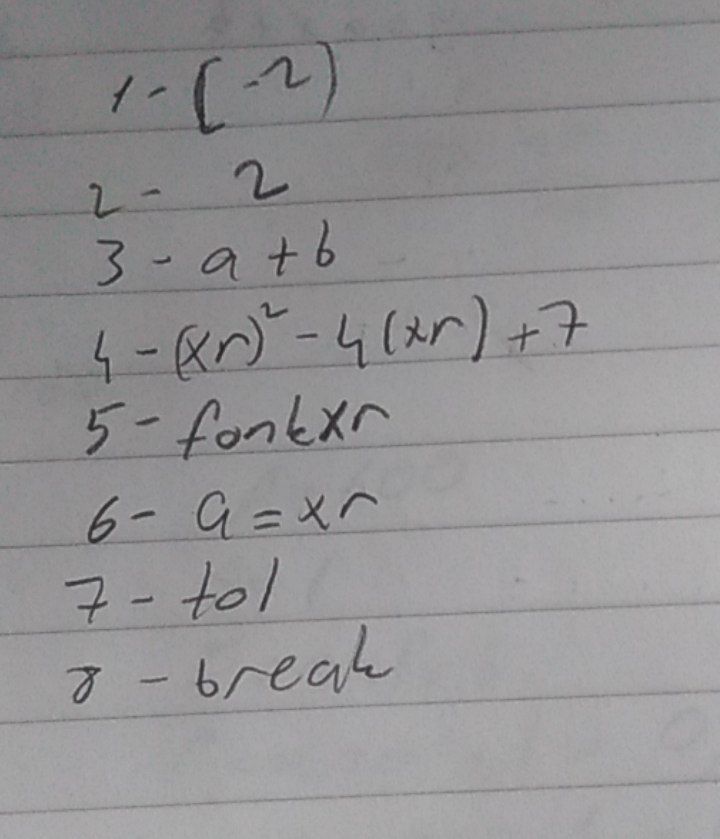 1 - (-2)
2 - 2
3 - a + b
4 - (xr)² - 4(xr) + 7
5 - fonkxr
6 - a = xr
7 - tol
8 - break